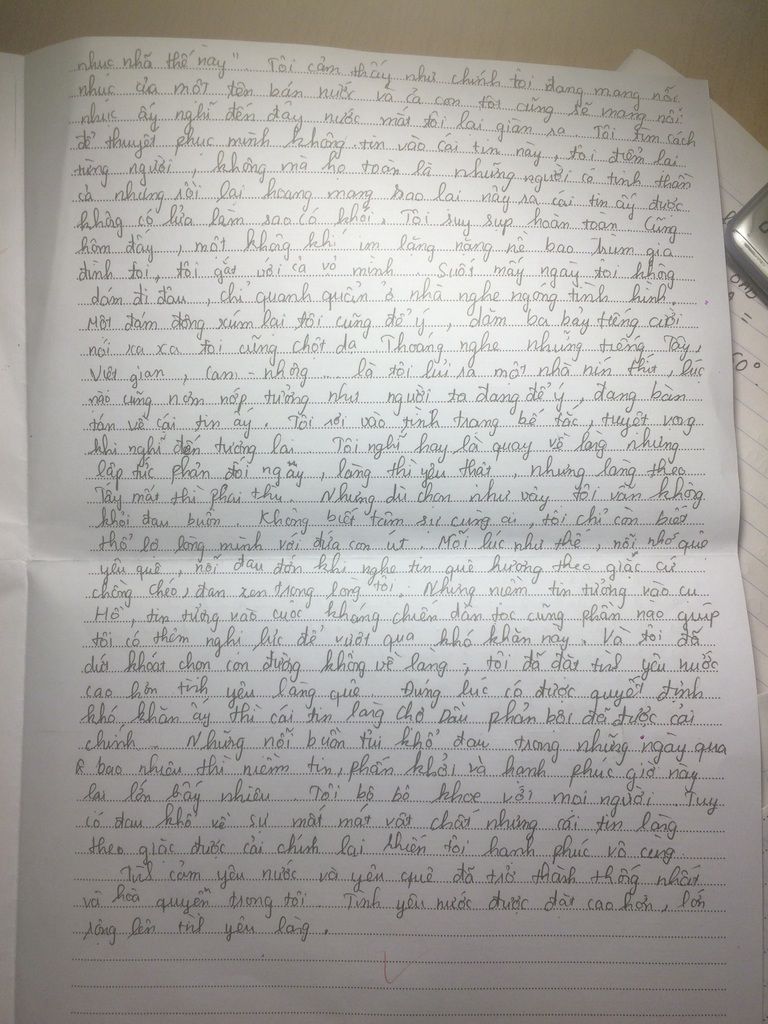 nhục nhã thế này". Tôi cảm thấy như chính tôi đang mang nỗi
nhục của một tên bán nước và cả con tôi cũng sẽ mang nỗi
nhục ấy nghĩ đến đây nước mắt tôi lại giàn ra. Tôi tìm cách
để thuyết phục mình không tin vào cái tin này, tôi điểm lại
từng người, không mà họ toàn là những người có tinh thần
cả nhưng rồi lại hoang mang sao lại nảy ra cái tin ấy được
không có lửa làm sao có khói. Tôi suy sụp hoàn toàn. Cũng
hôm đấy, một không khí im lặng nặng nề bao trùm gia
đình tôi, tôi gắt với cả vợ mình. Suốt mấy ngày tôi không
dám đi đâu, chỉ quanh quẩn ở nhà nghe ngóng tình hình.
Một đám đông xúm lại tôi cũng để ý, dăm ba bảy tiếng cười
nói xa xa tôi cũng chột dạ. Thoáng nghe những tiếng Tây,
Việt gian, cam - nhông ... là tôi lủi ra một nhà nín thít, lúc
nào cũng nơm nớp tưởng như người ta đang để ý, đang bàn
tán về cái tin ấy. Tôi rơi vào tình trạng bế tắc, tuyệt vọng
khi nghĩ đến tương lai. Tôi nghĩ hay là quay về làng nhưng
lập tức phản đối ngay, làng thì yêu thật, nhưng làng theo
Tây mất thì phải thù. Nhưng dù chọn như vậy tôi vẫn không
khỏi đau buồn. Không biết tâm sự cùng ai, tôi chỉ còn biết
thổ lộ lòng mình với đứa con út. Mỗi lúc như thế, nỗi nhớ quê
yêu quê, nỗi đau đớn khi nghe tin quê hương theo giặc cứ
chồng chéo, đan xen trong lòng tôi. Nhưng niềm tin tưởng vào cụ
Hồ, tin tưởng vào cuộc kháng chiến dân tộc cũng phần nào giúp
tôi có thêm nghị lực để vượt qua khó khăn này. Và tôi đã
dứt khoát chọn con đường không về làng, tôi đã đặt tình yêu nước
cao hơn tình yêu làng quê. Đúng lúc có được quyết định
khó khăn ấy thì cái tin làng chợ Dầu phản bội đã được cải
chính. Những nỗi buồn tủi khổ đau trong những ngày qua
bao nhiêu thì niềm tin, phấn khởi và hạnh phúc giờ này
lại lớn bấy nhiêu. Tôi bô bô khoe với mọi người. Tuy
có đau khổ về sự mất mát vật chất nhưng cái tin làng
theo giặc được cải chính lại khiến tôi hạnh phúc vô cùng.
Tình cảm yêu nước và yêu quê đã trở thành thống nhất
và hoà quyện trong tôi. Tình yêu nước được đặt cao hơn, lớn
rộng lên tình yêu làng.